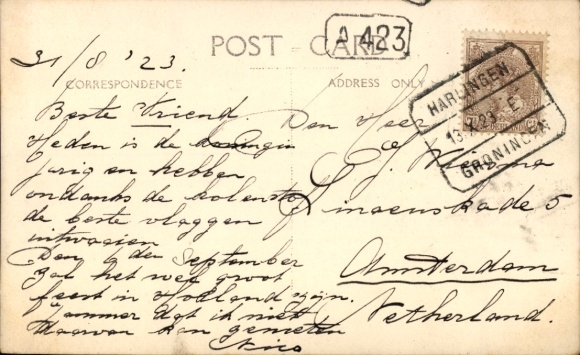 31/8 '23.
POST CARD
A 423
CORRESPONDENCE
ADDRESS ONLY
HARLINGEN
13.7.23 E
GRONINGEN
Beste Vriend
Heden is de koningin
jarig en hebben
ondanks de kolenstof
de beste vlaggen
uitwaaien
Den 6 den September
zal het weer groot
feest in Holland zijn.
Jammer dat ik niet
daarvan kan genieten
Nico
Den Heer
J.
Linaeuskade 5
Amsterdam
Netherland.